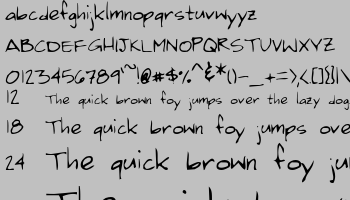 abcdefghijklmnopqrstuvwxyz
ABCDEFGHIJKLMNOPQRSTUVWXYZ
0123456789~`!@#$%^&*()-_+=>,<[]{}|\
12 The quick brown fox jumps over the lazy dog
18 The quick brown fox jumps ove
24 The quick brown fox ju